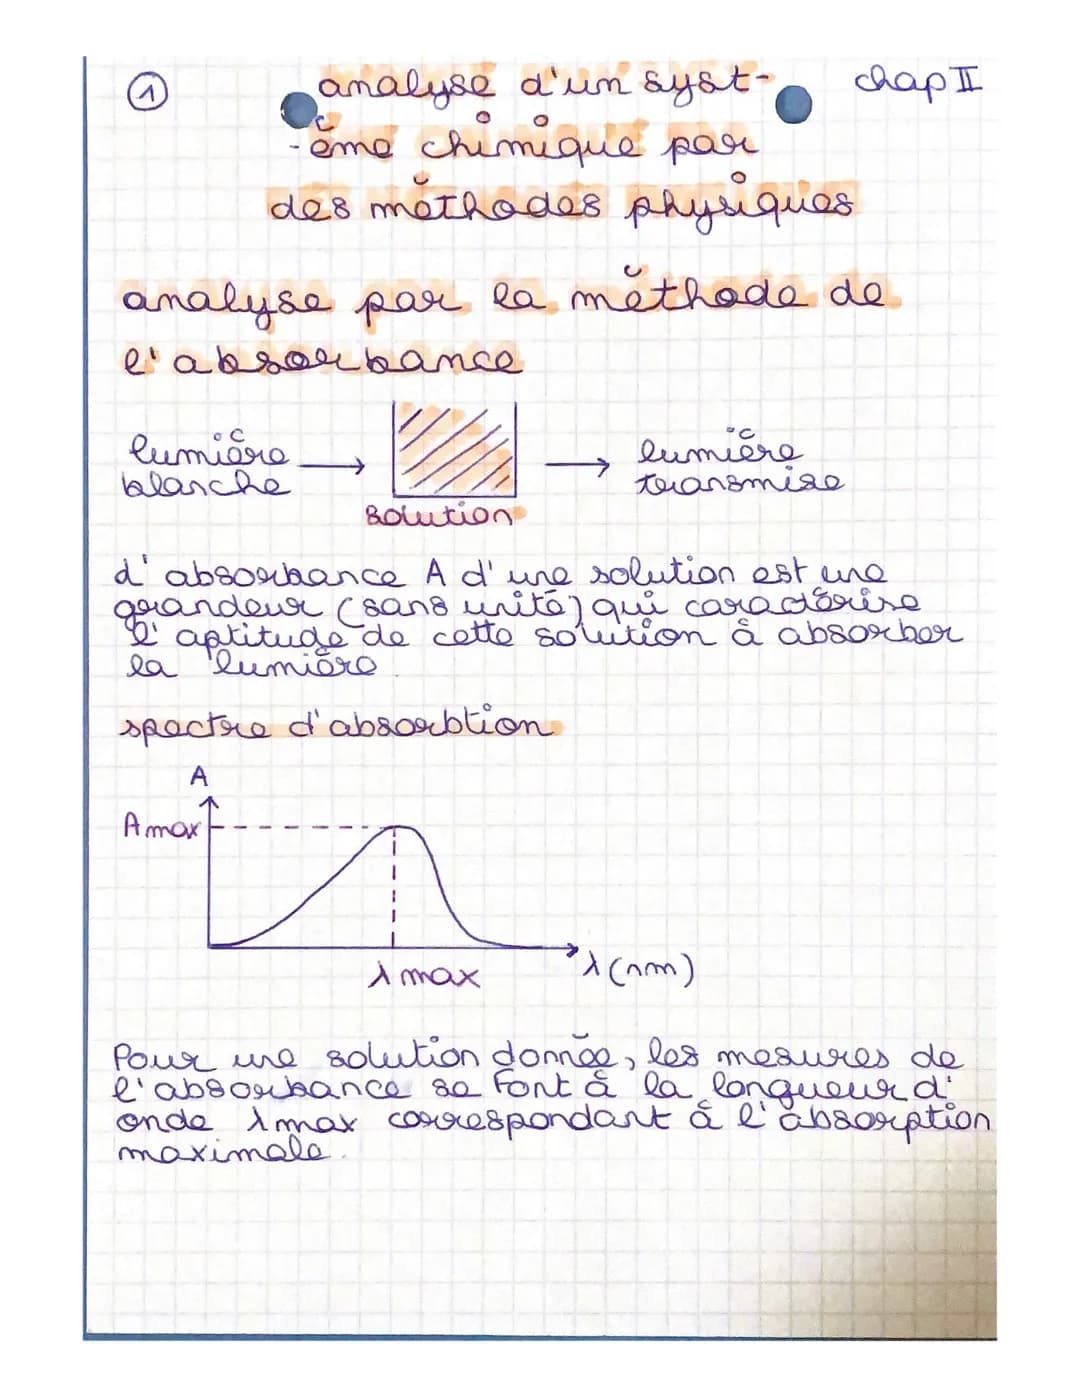 1
chap II
analyse d'un syst-
-ème chimique par
des méthodes physiques
analyse par la méthode de
l'absorbance
lumière
blanche
solution
lumière
transmise
d'absorbance A d'une solution est une
grandeur (sans unité) qui caractérise
l'aptitude de cette solution à absorber
la lumière.
spectre d'absorbtion
A
A max
λ max
λ (nm)
Pour une solution donnée, les mesures de
l'absorbance se font à la longueur d'
onde λ max correspondant à l'absorption
maximale.